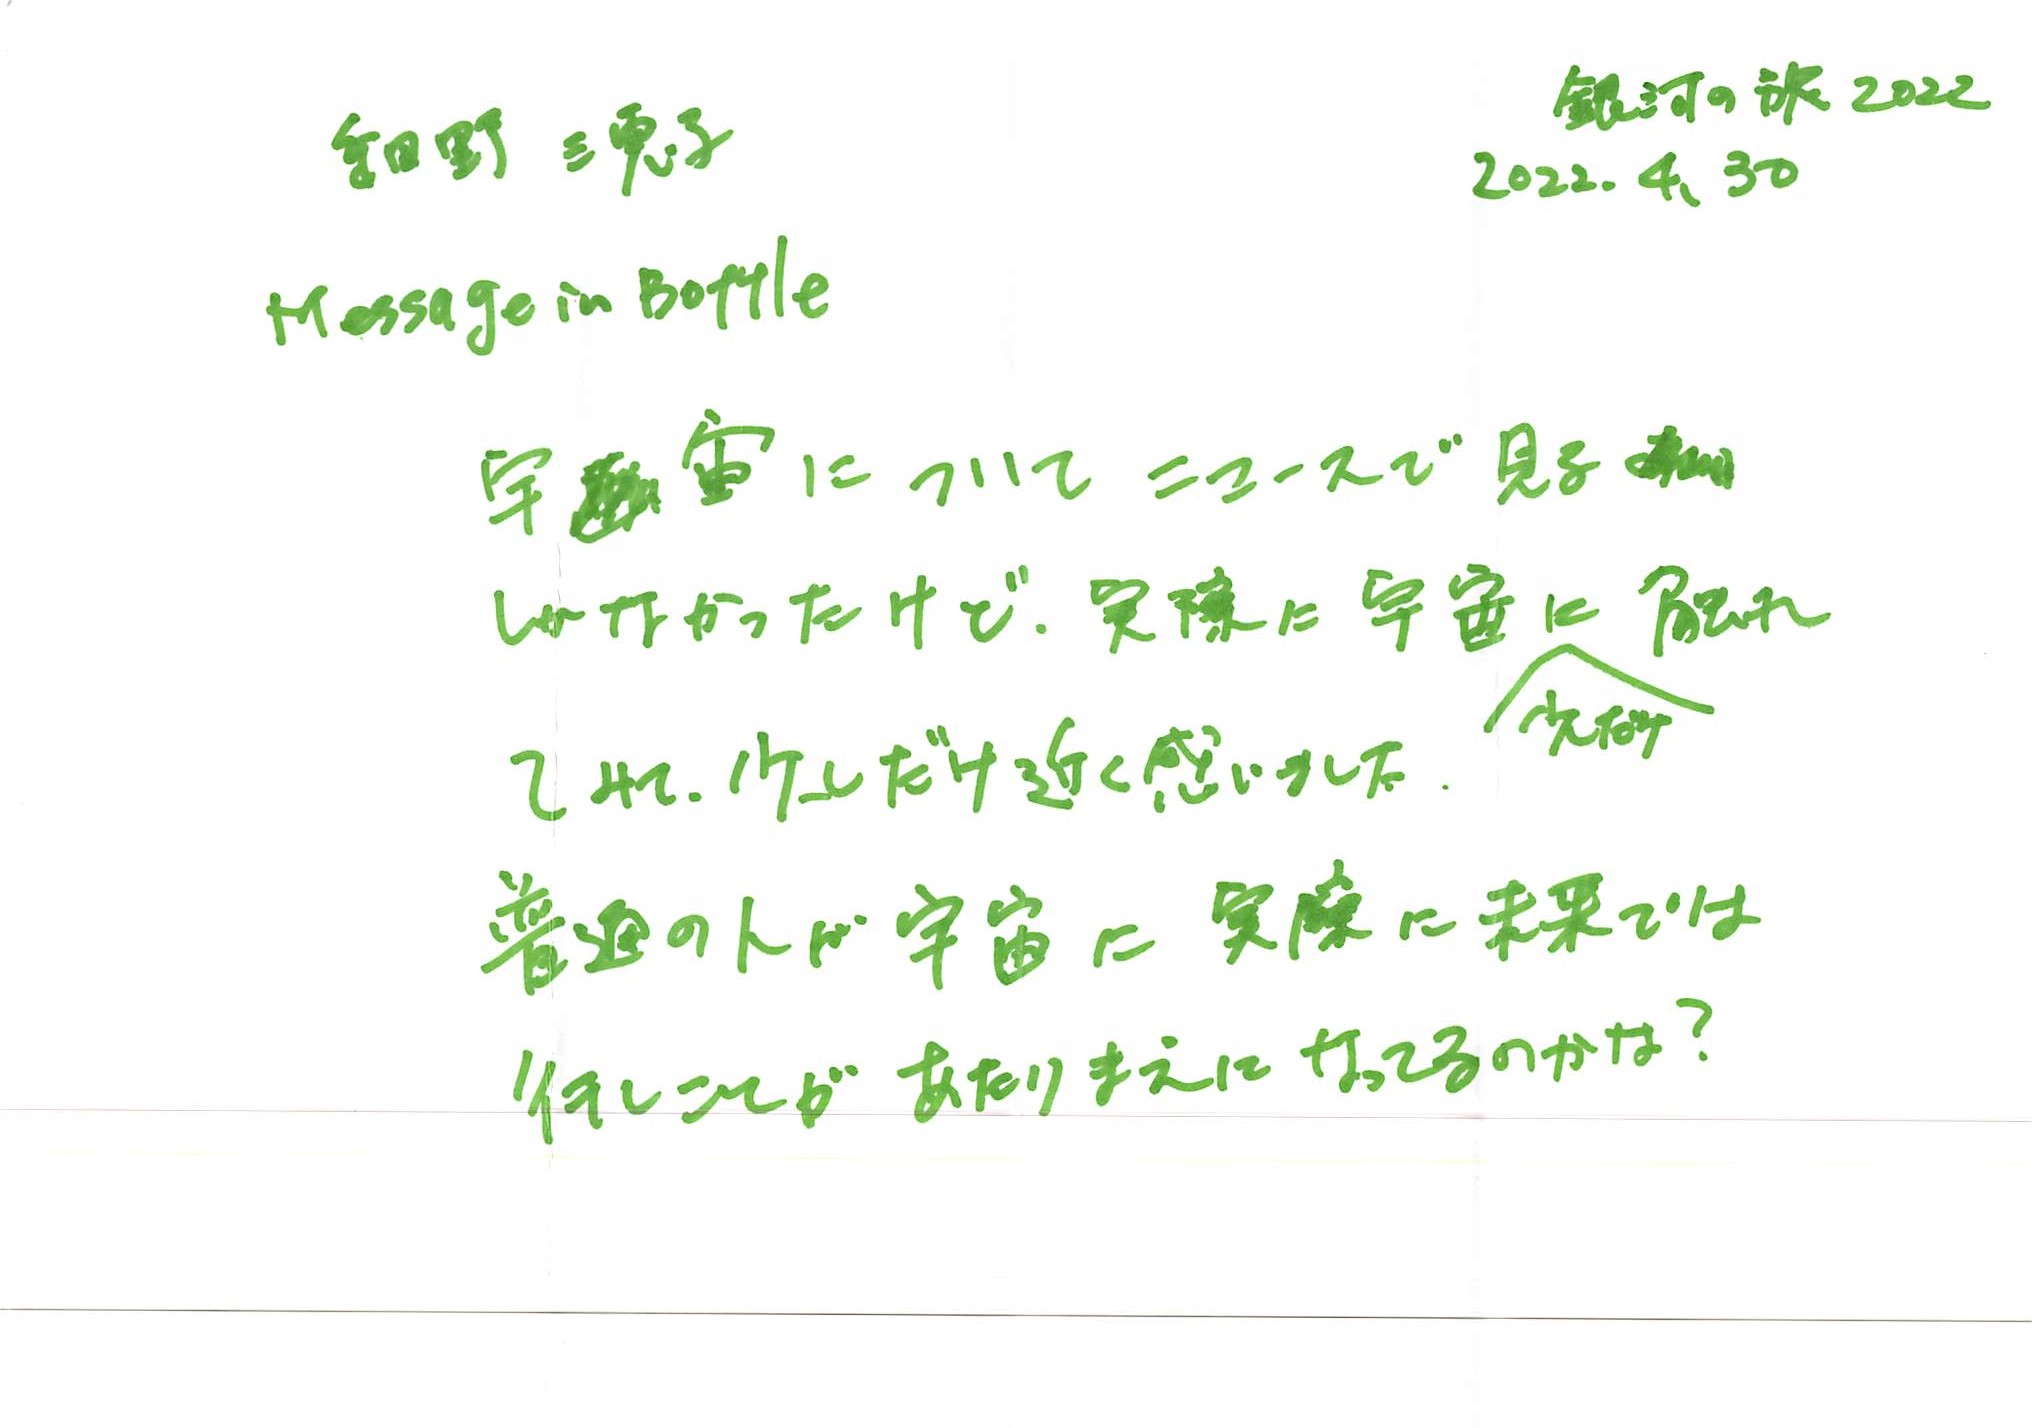 銀河の旅 2022
2022.4.30
野 三恵子
Message in Bottle
宇宙について ニュースで見る
しかなかったけど、実際に宇宙に 触れ
少しだけ
てみて、少しだけ近く感じました.
普通の人が宇宙に実際に未来では
行くことがあたりまえになってるのかな?